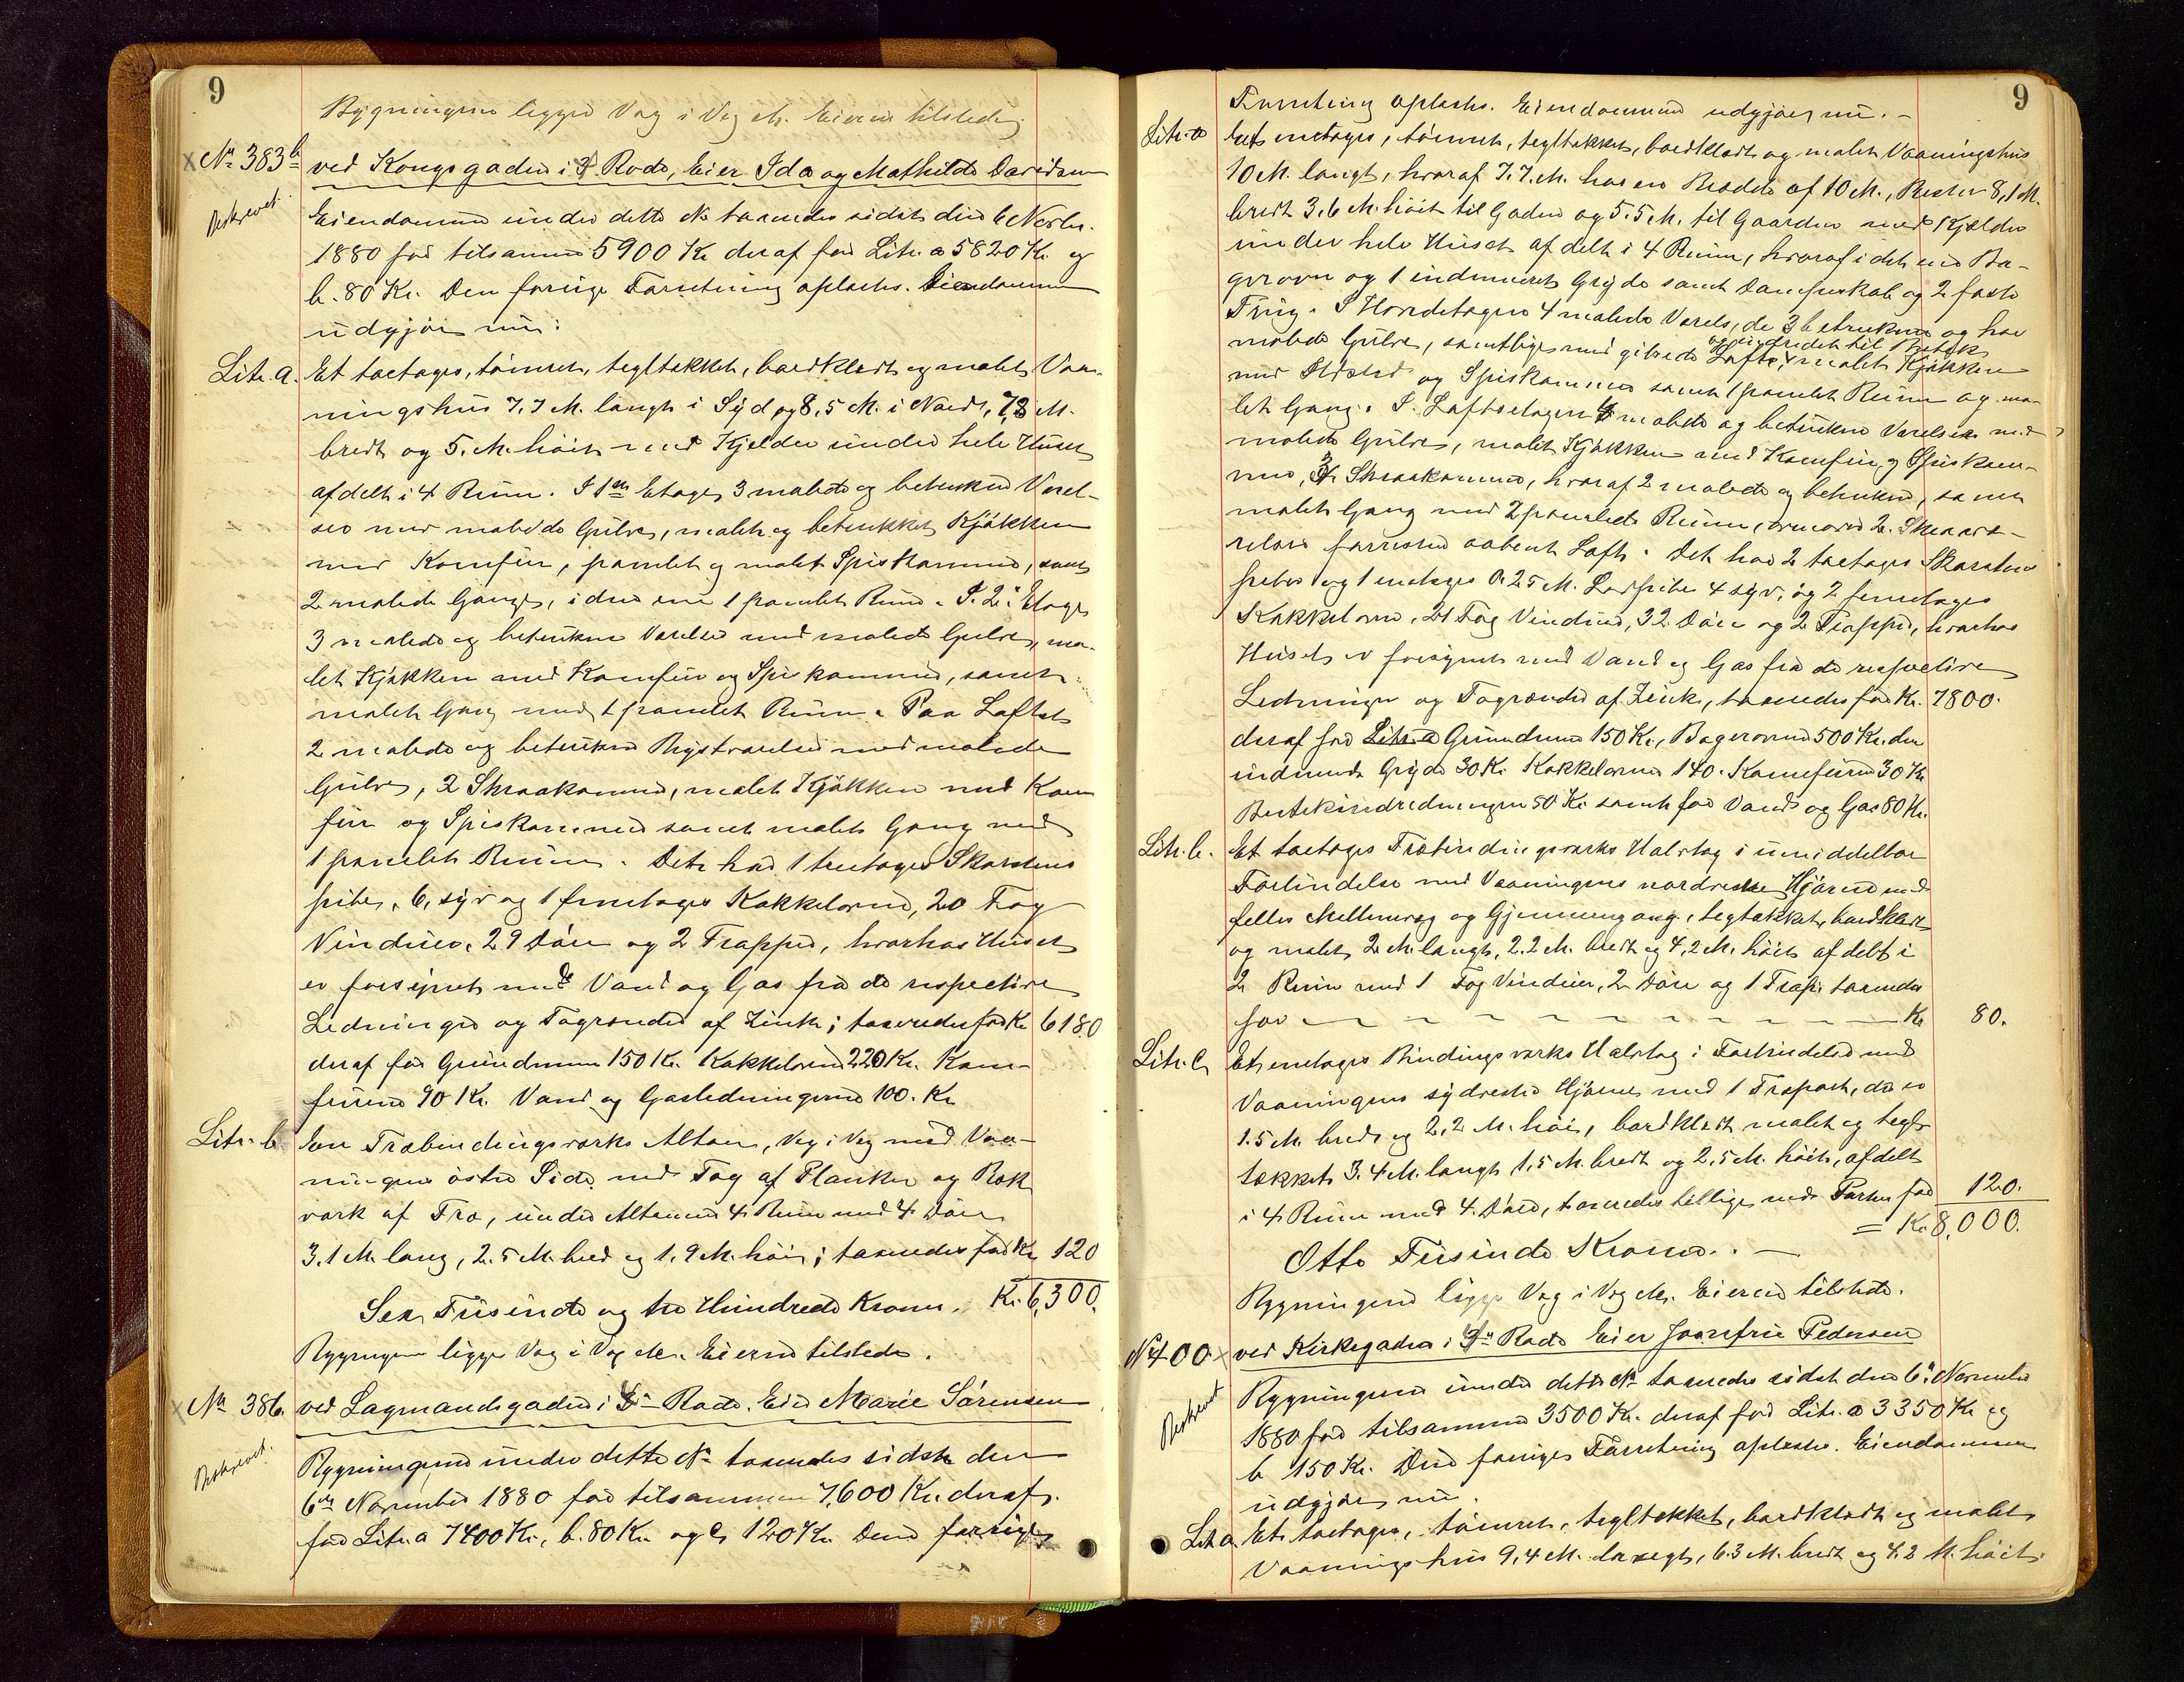 9
Bygningerne ligger Væg i Væg etc. Eieren tilstede.
No 383b ved Kongsgaden i 4 Rode, Eier Ida og Mathilde Davidsen
Beskrevet.
Eiendommen under dette No taxeredes sidst den 6 Novbr.
1880 for tilsammen 5900 Kr deraf for Litr. a 5820 Kr. og
b. 80 Kr. Den forrige Forretning oplæstes. Eiendommen
udgjør nu:
Litr. a. Et toetages, tømret, tegltækket, bordklædt og malet Vaa-
ningshus 7,7 M. langt i Syd og 8,5 M. i Nord, 7,8 M.
bredt og 5. M. høit med Kjelder under hele Huset
afdelt i 4 Rum. I 1ste Etage, 3 malede og betrukne Værel-
ser med malede Gulve, malet og betrukket Kjøkken
med Komfur, panelet og malet Spiskammer, samt
2 malede Gange, i den ene 1 panelet Rum. I 2. Etage
3 malede og betrukne Værelser med malede Gulve, ma-
let Kjøkken med Komfur og Spiskammer, samt
malet Gang med 1 panelet Rum. Paa Loftet
2 malede og betrukne Kvistværelser med malede
Gulve, 2 Skraakammer, malet Kjøkken med Kom
fur og Spiskammer samt malet Gang med
1 panelet Rum. Det har 1 treetages Skorstens
pibe, 6, syv og 1 fireetages Kakkelovne, 20 Fag
Vinduer, 29 Døre og 2 Trapper, hvorhos Huset
er forsynet med Vand og Gas fra de respective
Ledninger og Tagrender af Zink; taxeredes for Kr 6180
deraf for Grundmur 150 Kr. Kakkelovne 220 Kr. Kom-
furene 90 Kr. Vand og Gasledningerne 100. Kr
Litr. b En Træbindingsværks Altan, Væg i Væg med Vaa-
ningens østre Side, med Tag af Planker og Ræk
værk af Træ, under Altanen 4 Rum med 4 Døre
3,1 M. lang, 2,5 M. bred og 1,9 M. høi; taxeredes for Kr 120
Sex Tusinde og tre Hundrede Kroner. Kr. 6,300.
Bygningerne ligger Væg i Væg etc. Eieren tilstede.
No 386. ved Lagmandsgaden i 4de Rode. Eier Marie Sørensen
Beskrevet.
Bygningerne under dette No taxeredes sidst den
6te November 1880 for tilsammen 7,600 Kr. deraf
for Litr. a 7400 Kr., b. 80 Kr. og c, 120 Kr. Den forrige
9
Forretning oplæstes. Eiendommen udgjør nu. -
Litr. a Et enetages, tømret, tegltækket, bordklædt og malet Vaaningshus
10 M. langt, hvoraf 7,7 M. har en Bredde af 10 M., Resten 8,1 M.
bredt 3,6 M. høit til Gaden og 5,5 M. til Gaarden med Kjelder
under hele Huset afdelt i 4 Rum, hvoraf i det ene Ba-
gerovn og 1 indmuret Gryde samt Dampeskab og 2 faste
Trug. I Hovedetagen 4 malede Værels, de 3 betrukne og har
malede Gulve, samtlige med gibsede Lofte, malet Kjøkken
og indredet til Butik
med Ildsted og Spiskammer samt 1 panelet Rum og ma-
let Gang. I Loftsetagen 4 malede og betrukne Værelser med
malede Gulve, malet Kjøkken med Komfur, og Spiskam-
mer, 3 Skraakammer, hvoraf 2 malede og betrukne, samt
malet Gang med 2 panelede Rum, ovenover 2. Skraavæ-
relser forresten aabent Loft. Det har 2 toetages Skorstens
piber og 1 enetages 0,25 M. Lodpibe 4 syv, og 2 femetages
Kakkelovne, 21 Fag Vinduer, 32 Døre og 2 Trapper, hvorhos
Huset er forsynet med Vand og Gas fra de respective
Ledninger og Tagrender af Zink, taxeredes for Kr. 7800.
deraf for Litr. a Grundmur 150 Kr., Bagerovn 500 Kr. den
indmurede Gryde 30 Kr. Kakkelovne 140. Komfuren 30 Kr
Butikindredningen 50 Kr. samt for Vand og Gas 80 Kr.
Litr. b. Et toetages Træbindingsværks Halvtag i umiddelbar
Forbindelse med Vaaningens nordvestre Hjørne med
fælles Mellemvæg og Gjennemgang, tegltækket, bordklædt
og malet, 2 M. langt, 2,2 M. bredt og 4,2 M. høit afdelt i
2 Rum med 1 Fag Vinduer, 2 Døre og 1 Trap. taxeredes
for Kr 80.
Litr. c, Et enetages Bindingsværks Halvtag i Forbindelse med
Vaaningens sydvestre Hjørne med 1 Træport, der er
1,5 M. bred og 2,2 M. høi, bordklædt malet og tegl-
tækket 3,4 M. langt 1,5 M. bredt og 2,5 M. høit, afdelt
i 4 Rum med 4 Døre, taxeredes tillige med Porten for 120.
= Kr. 8,000.
Otto Tusinde Kroner. -
Bygningerne ligger Væg i Væg etc. Eieren tilstede.
No 400 ved Kirkegaden i 4de Rode Eier Josefine Pedersen
Beskrevet
Bygningerne under dette No taxeredes sidst den 6te November
1880 for tilsammen 3500 Kr. deraf for Litr. a 3350 Kr og
b 150 Kr. Den forrige Forretning oplæstes. Eiendommen
udgjør nu.
Lit a. Et toetages, tømret, tegltækket, bordklædt og malet
Vaaningshus 9,4 M. langt, 6,3 M. bredt og 4,2 M. høit